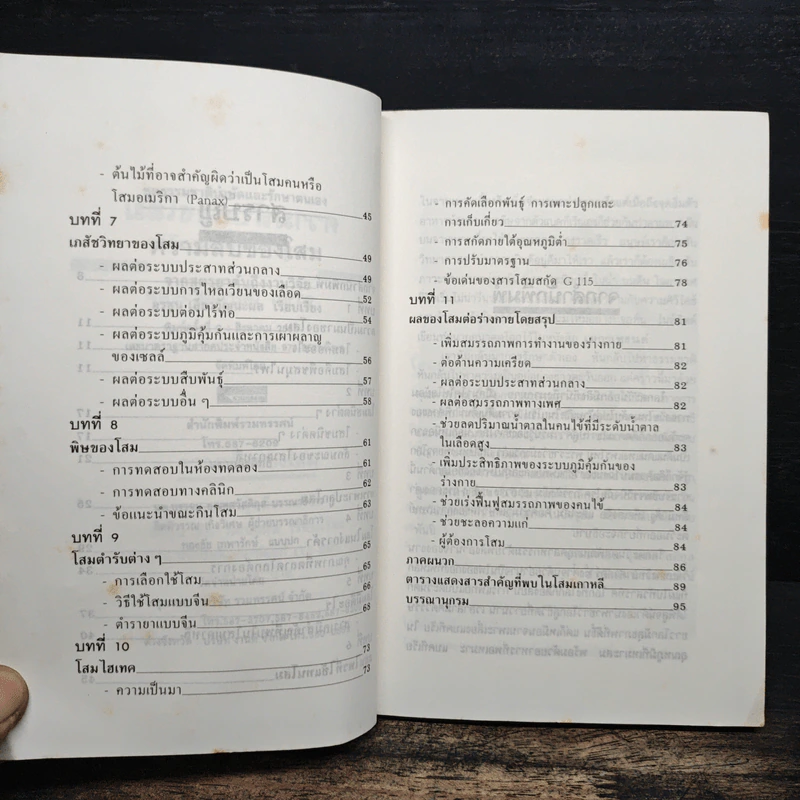 - ต้นไม้ที่อาจสำคัญผิดว่าเป็นโสมคนหรือ
โสมอเมริกา (Panax) 45
บทที่ 7
เภสัชวิทยาของโสม 49
- ผลต่อระบบประสาทส่วนกลาง 49
- ผลต่อระบบการไหลเวียนของเลือด 52
- ผลต่อระบบต่อมไร้ท่อ 54
- ผลต่อระบบภูมิคุ้มกันและการเผาผลาญ
ของเซลล์ 56
- ผลต่อระบบสืบพันธุ์ 57
- ผลต่อระบบอื่น ๆ 58
บทที่ 8
พิษของโสม 61
- การทดสอบในห้องทดลอง 61
- การทดสอบทางคลินิก 62
- ข้อแนะนำขณะกินโสม 63
บทที่ 9
โสมตำรับต่าง ๆ 65
- การเลือกใช้โสม 65
- วิธีใช้โสมแบบจีน 66
- ตำรายาแบบจีน 68
บทที่ 10
โสมไฮเทค 73
- ความเป็นมา 73
- การคัดเลือกพันธุ์ การเพาะปลูกและ
การเก็บเกี่ยว 74
- การสกัดภายใต้อุณหภูมิต่ำ 75
- การปรับมาตรฐาน 76
- ข้อเด่นของสารโสมสกัด G 115 78
บทที่ 11
ผลของโสมต่อร่างกายโดยสรุป 81
- เพิ่มสมรรถภาพการทำงานของร่างกาย 81
- ต่อต้านความเครียด 82
- ผลต่อระบบประสาทส่วนกลาง 82
- ผลต่อสมรรถภาพทางเพศ 82
- ช่วยลดปริมาณน้ำตาลในคนไข้ที่มีระดับน้ำตาล
ในเลือดสูง 82
- เพิ่มประสิทธิภาพของระบบภูมิคุ้มกันของ
ร่างกาย 83
- ช่วยเร่งฟื้นฟูสมรรถภาพของคนไข้ 83
- ช่วยชะลอความแก่ 84
- ผู้ต้องการโสม 84
ภาคผนวก 86
ตารางแสดงสารสำคัญที่พบในโสมเกาหลี 89
บรรณานุกรม 95